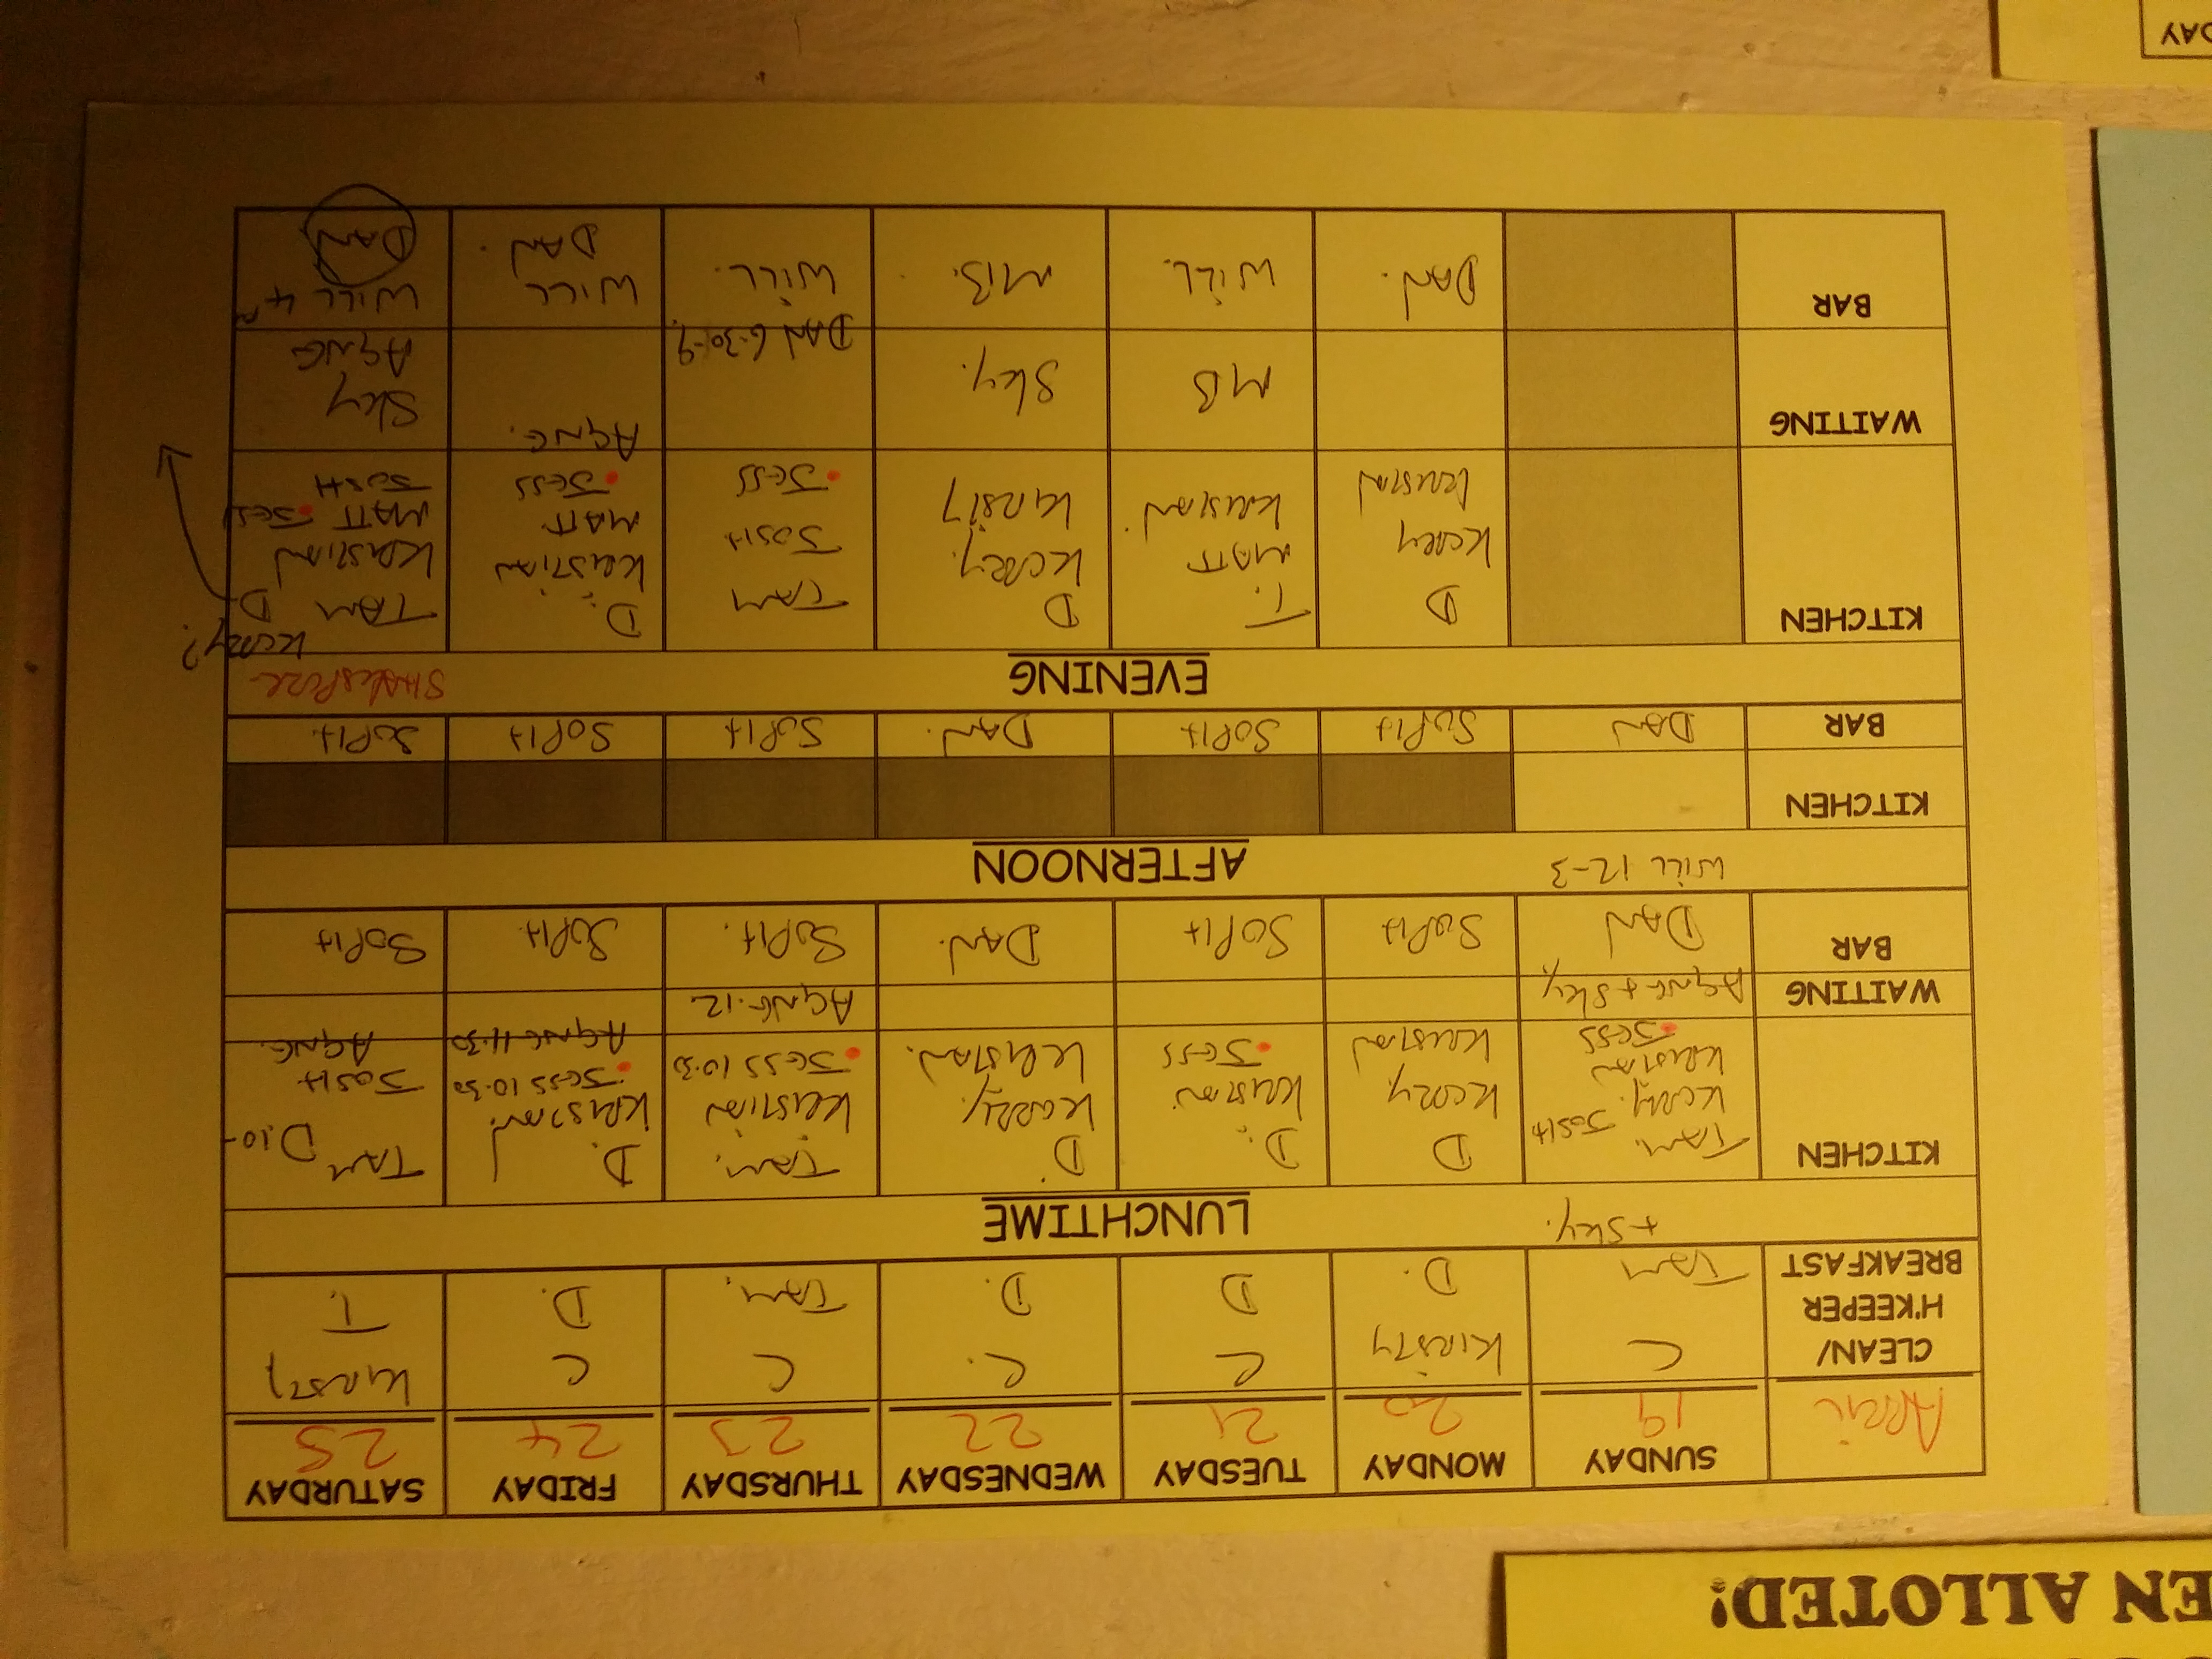 EN ALLOTED!
SUNDAY MONDAY TUESDAY WEDNESDAY THURSDAY FRIDAY SATURDAY
APRIL 19 20 21 22 23 24 25
CLEAN/ C KIRSTY C C. C C KIRSTY
H'KEEPER
BREAKFAST TAM D. D D. TAM. D. T.
+ SKY.
LUNCHTIME
KITCHEN
TAM. JOSH D D. D TAM. D. TAM D.10-
KERRY. KERRY KRISTIAN KERRY. KRISTIAN KRISTIAN JOSH
KRISTIAN KRISTIAN JESS KRISTIAN. JESS 10.30 JESS 10.30 AGNE.
JESS AGNE 11.30
WAITING AGNE + SKY. AGNE.12
BAR DAN SOPH SOPH DAN. SOPH. SOPH SOPH
WILL 12-3
AFTERNOON
KITCHEN
BAR DAN SOPH SOPH DAN. SOPH SOPH SOPH
EVENING
KERRY?
KITCHEN
D T. D TAM D. TAM D
KERRY MATT KERRY. JOSH KRISTIAN KRISTIAN
KRISTIAN KRISTIAN. KIRSTY JESS MATT MATT JESS
JESS JOSH
WAITING MB SKY. AGNE. SKY
AGNE
DAN 6-30-9.
BAR DAN. WILL. MB. WILL. WILL WILL 4
DAN DAN
DAY